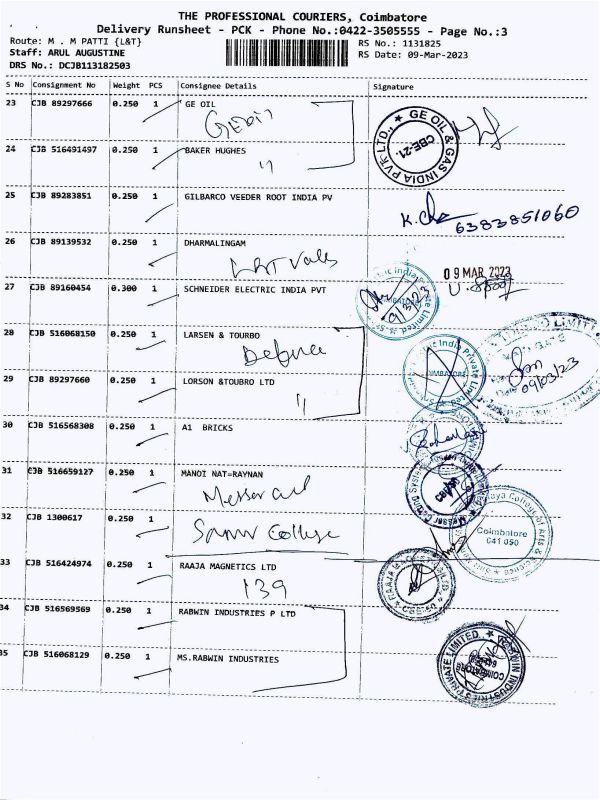 THE PROFESSIONAL COURIERS, Coimbatore
Delivery Runsheet - PCK - Phone No.:0422-3505555 - Page No.:3
Route: M . M PATTI {L&T} RS No.: 1131825
Staff: ARUL AUGUSTINE RS Date: 09-Mar-2023
DRS No.: DCJB113182503
S No Consignment No Weight PCS Consignee Details Signature
23 CJB 89297666 0.250 1 GE OIL
GE OIL & GAS INDIA PVT LTD., CBE-21.
24 CJB 516491497 0.250 1 BAKER HUGHES
"
25 CJB 89283851 0.250 1 GILBARCO VEEDER ROOT INDIA PV
6383851060
26 CJB 89139532 0.250 1 DHARMALINGAM
L&T Valves
09 MAR 2023
27 CJB 89160454 0.300 1 SCHNEIDER ELECTRIC INDIA PVT
28 CJB 516068150 0.250 1 LARSEN & TOURBO
Defence
09/03/23
29 CJB 89297660 0.250 1 LORSON &TOUBRO LTD
"
30 CJB 516568308 0.250 1 A1 BRICKS
31 CJB 516659127 0.250 1 MANOI NAT-RAYNAN
Messer
32 CJB 1300617 0.250 1
College
Coimbatore
641 050
33 CJB 516424974 0.250 1 RAAJA MAGNETICS LTD
139
34 CJB 516569569 0.250 1 RABWIN INDUSTRIES P LTD
35 CJB 516068129 0.250 1 MS.RABWIN INDUSTRIES
RABWIN INDUSTRIES PRIVATE LIMITED. COIMBATORE